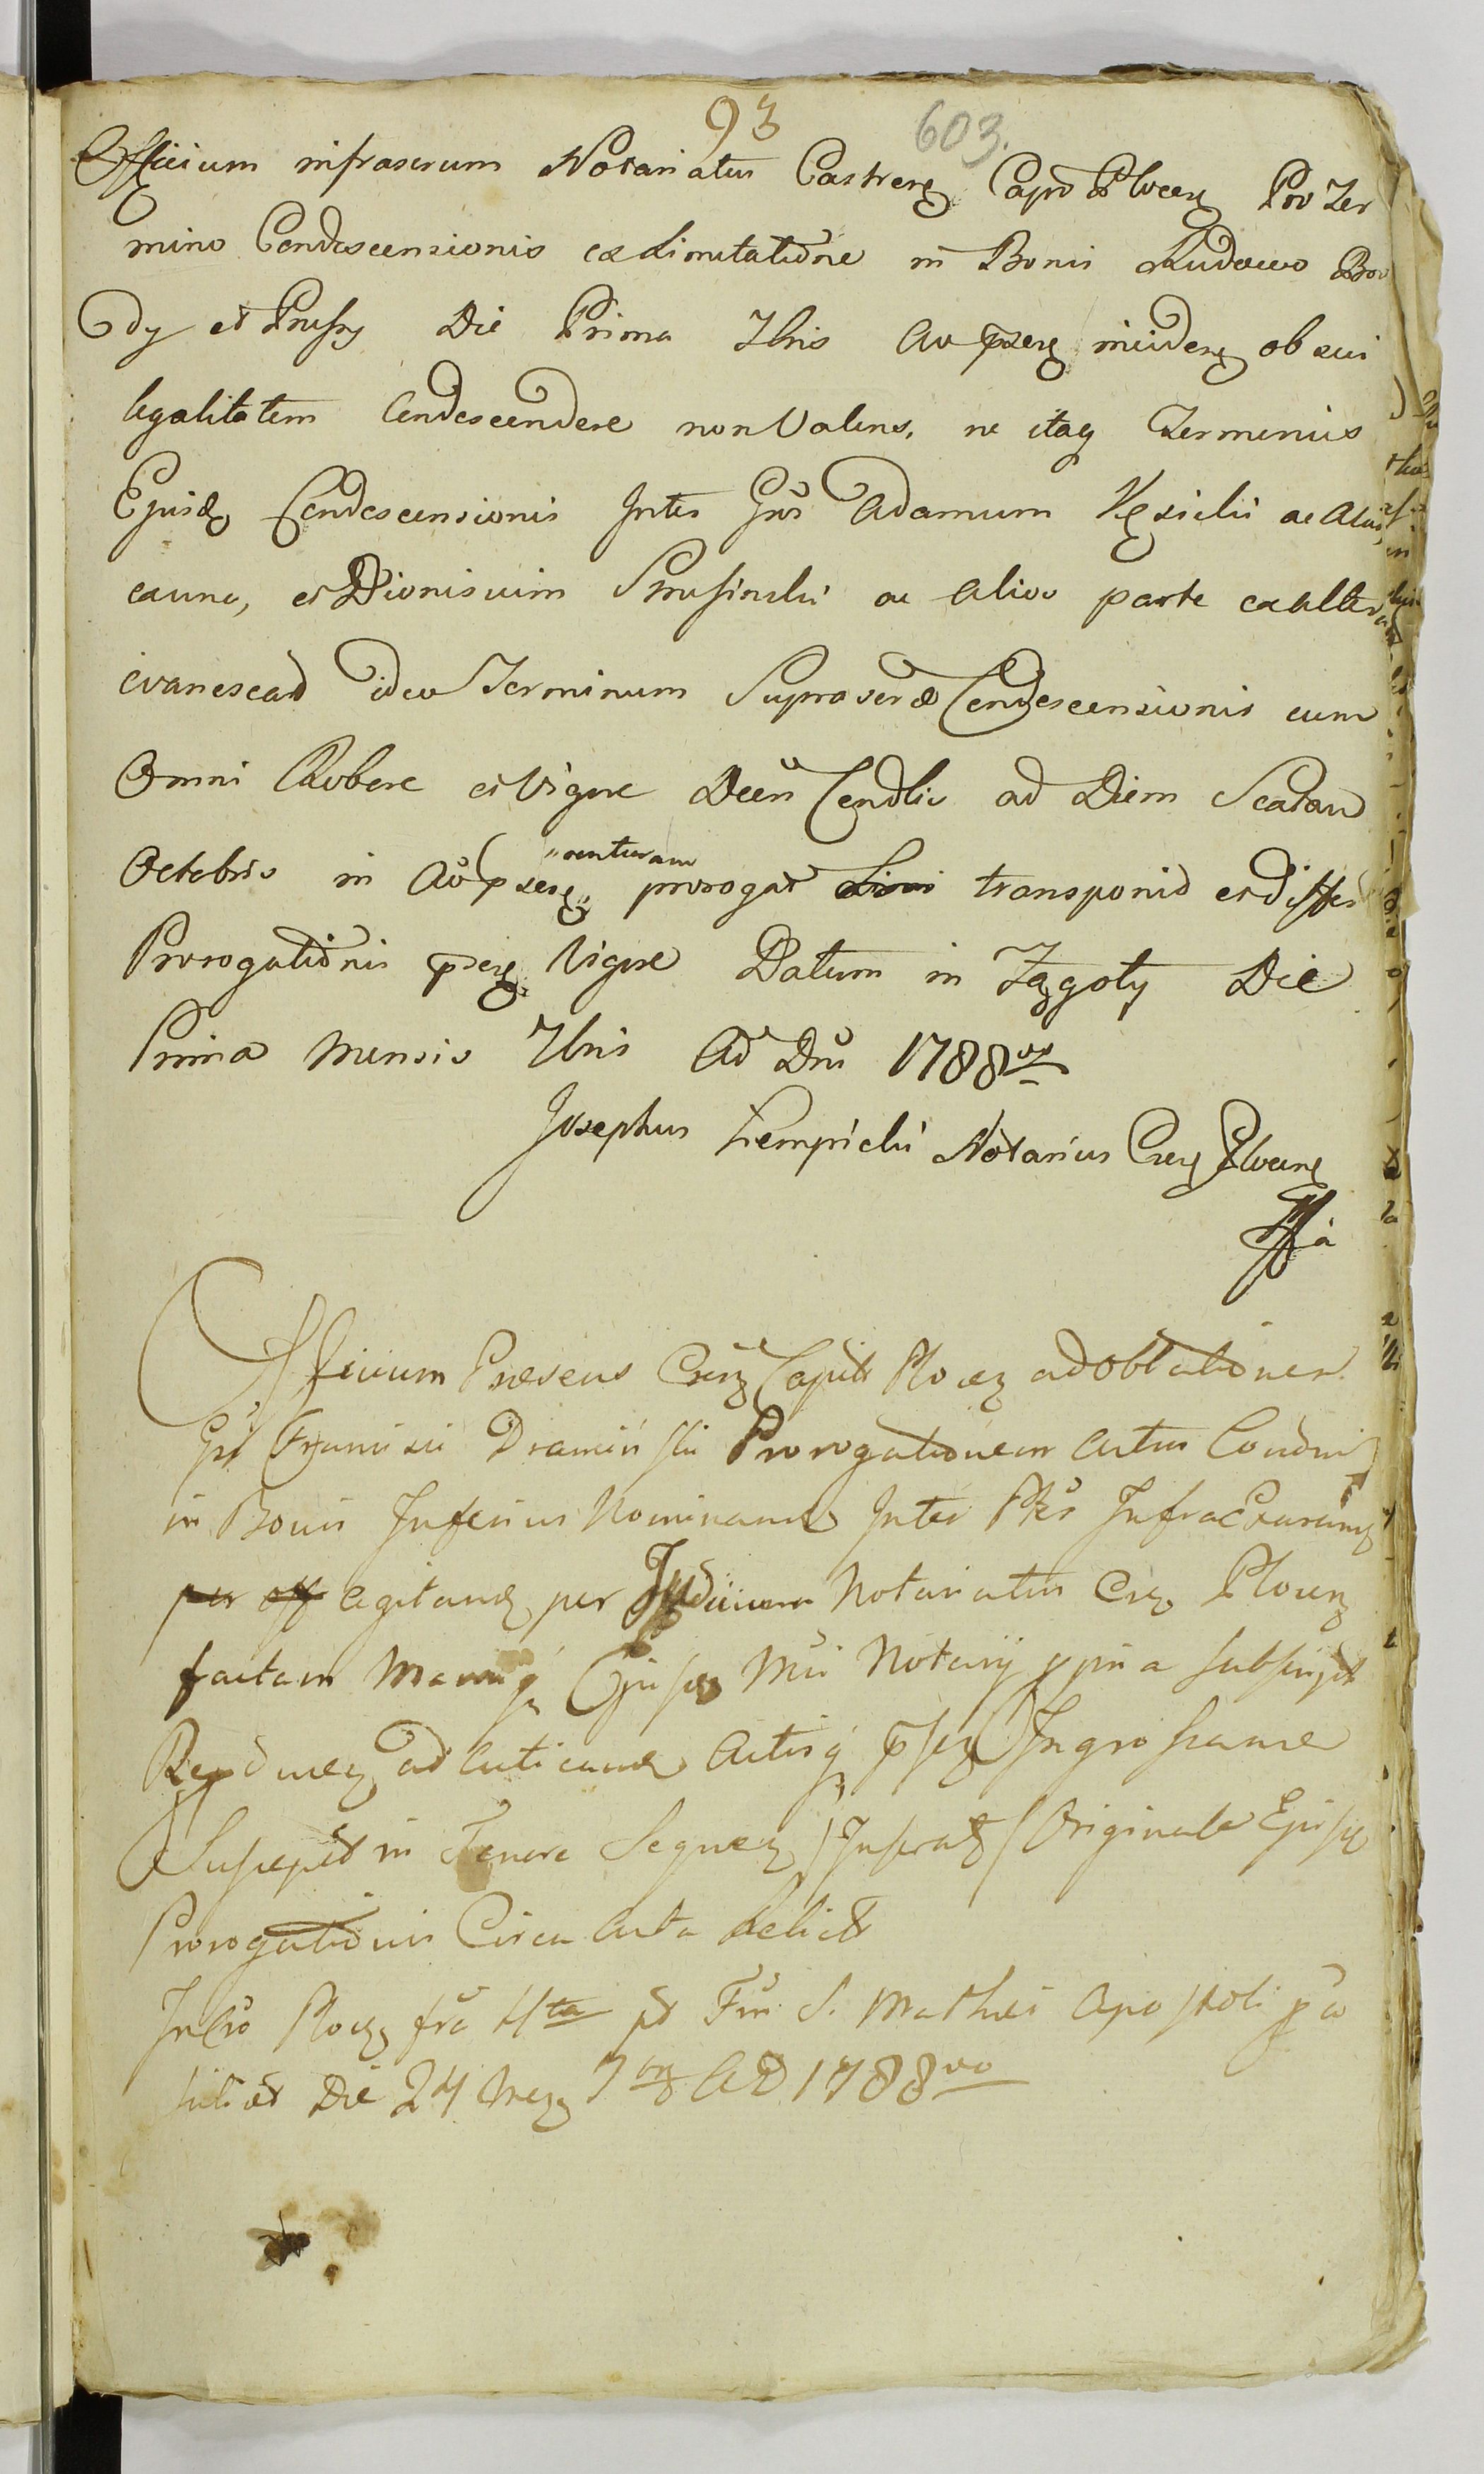 93 603.
Officium infrascrum Notariatus Castren Capt Plocen Pro Ter
mino Condescensionis ex Limitatione in Bonis Rudowo Bro
dy et Prusy Die Prima 7bris Ao psen inciden ob sui
legalitatem Condescendere non Valens, ne itaq Terminus
Ejusd Condescensionis Inter Gnos Adamum ac Alios
ex una, et Dionisium Prusinski ac alios parte ex altera
evanescat ideo Terminum Suprascrae Condescensionis cum
Omni Robore et Vigore Deen Condlis ad Diem
Octobris in Ao psen venturam prorogat transponit et differt
Prorogationis psen Vigore Datum in Zągoty Die
Prima Mensis 7bris Ao Dni 1788vo
Josephus Zempicki Notarius Cren Plocen
Officium Praesens Cren Capitt Plocen ad oblationem
Gsi Francisci Dramiński Prorogationem actus Condnis
in Bonis Inferius Nominand Inter Ptes Infra
per off agitand per Judicium Notariatus Cren Plocen
factam Manuq Ejusd Mci Notarij ppria subscript
Repducen ad acticand Actisq psen Ingrossand
Suscepit in Tenore Sequen Inserat Originale Ejusd
Prorogationis Circa Acta Relict
In Cro Plocen fra 4ta pt Fm S. Mathei Apostoli pa
scilicet Die 24 Mens 7bris A D 1788vo